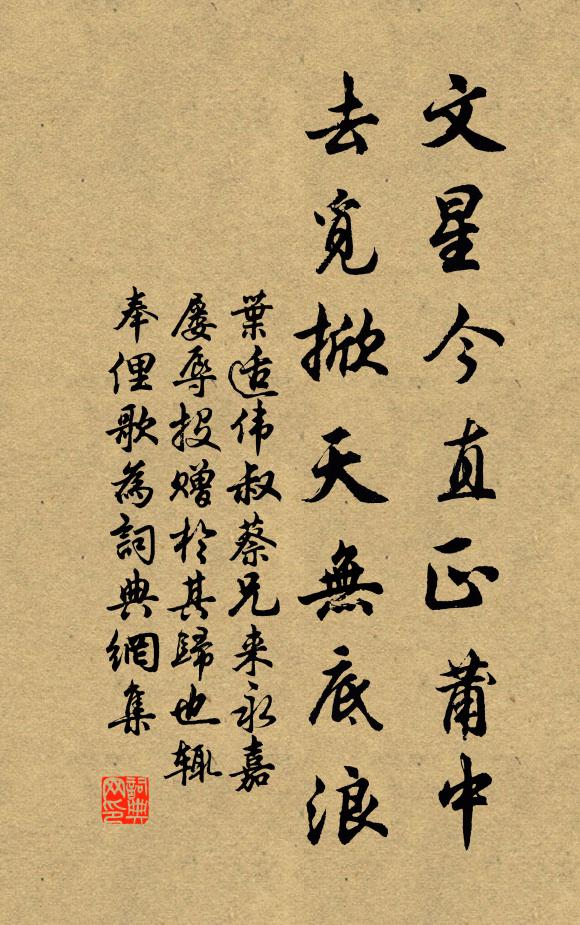 文星今直正莆中
去覓掀天無底浪
葉适伟叔蔡兄来永嘉
屡辱投赠於其歸也辄
奉俚歌為詞典網集
詞典网印